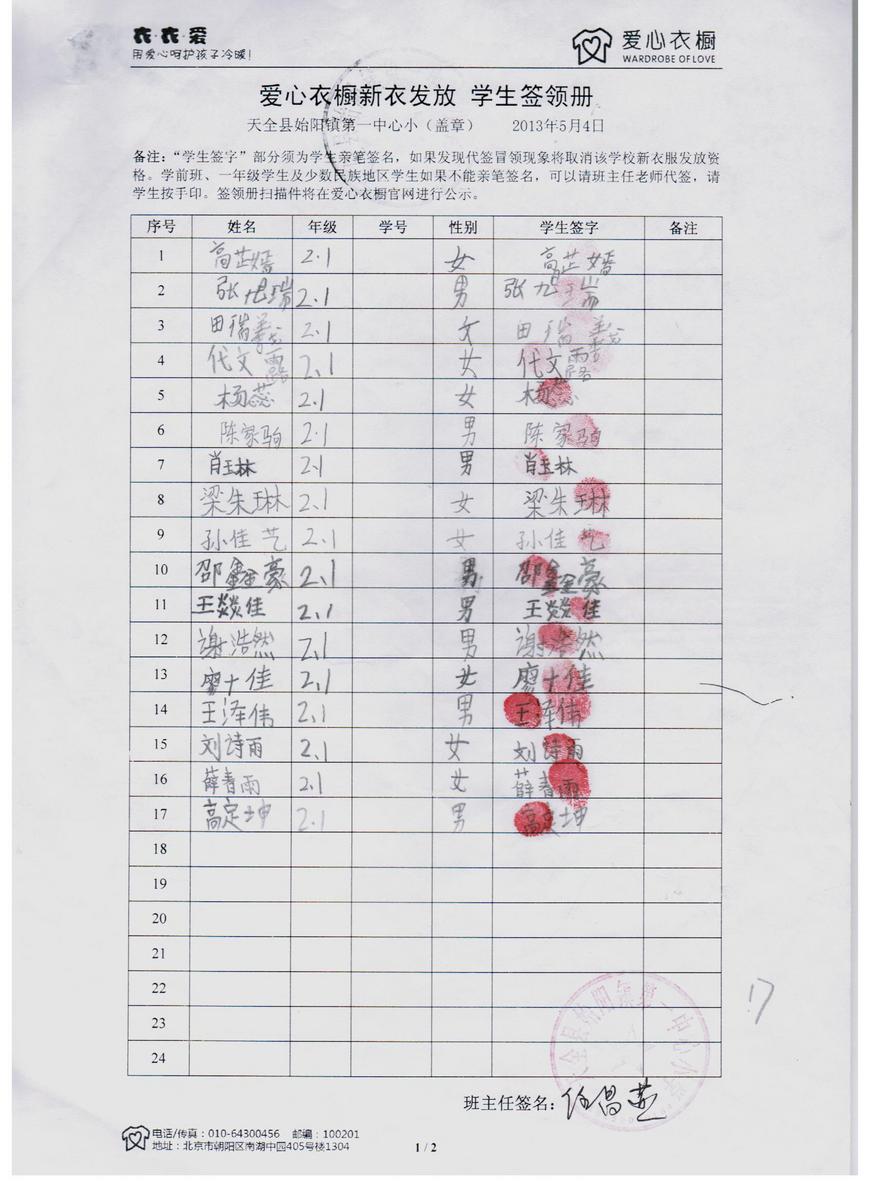 衣·衣·爱
用爱心呵护孩子冷暖!
爱心衣橱
WARDROBE OF LOVE
爱心衣橱新衣发放 学生签领册
天全县始阳镇第一中心小(盖章) 2013年5月4日
备注:“学生签字”部分须为学生亲笔签名,如果发现代签冒领现象将取消该学校新衣服发放资
格。学前班、一年级学生及少数民族地区学生如果不能亲笔签名,可以请班主任老师代签,请
学生按手印。签领册扫描件将在爱心衣橱官网进行公示。
序号 姓名 年级 学号 性别 学生签字 备注
1 高芷嫣 2.1 女 高芷嫣
2 张 瑞 2.1 男 张
3 田瑞 2.1 女 田瑞
4 代文露 2.1 女 代文露
5 杨蕊 2.1 女 杨蕊
6 陈家驹 2.1 男 陈家驹
7 肖玉林 2.1 男 肖玉林
8 梁朱琳 2.1 女 梁朱琳
9 孙佳艺 2.1 女 孙佳艺
10 邵鑫豪 2.1 男 邵鑫豪
11 王燚佳 2.1 男 王燚佳
12 谢浩然 2.1 男 谢浩然
13 廖十佳 2.1 女 廖十佳
14 王泽伟 2.1 男 王泽伟
15 刘诗雨 2.1 女 刘诗雨
16 薛春雨 2.1 女 薛春雨
17 高定坤 2.1 男 高定坤
18
19
20
21
22
23
24
17
天全县始阳镇第一中心小学
班主任签名:任昌
电话/传真:010-64300456 邮编:100201
地址:北京市朝阳区南湖中园405号楼1304
1 / 2